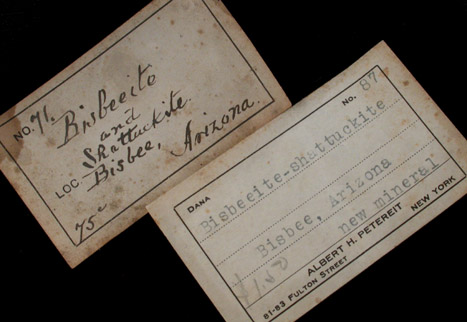 NO. 71.
Bisbeeite
and
Shattuckite.
LOC. Bisbee, Arizona.
75c
DANA No. 87
Bisbeeite-shattuckite
Bisbee, Arizona
new mineral
$1.50
ALBERT H. PETEREIT
81-83 FULTON STREET NEW YORK